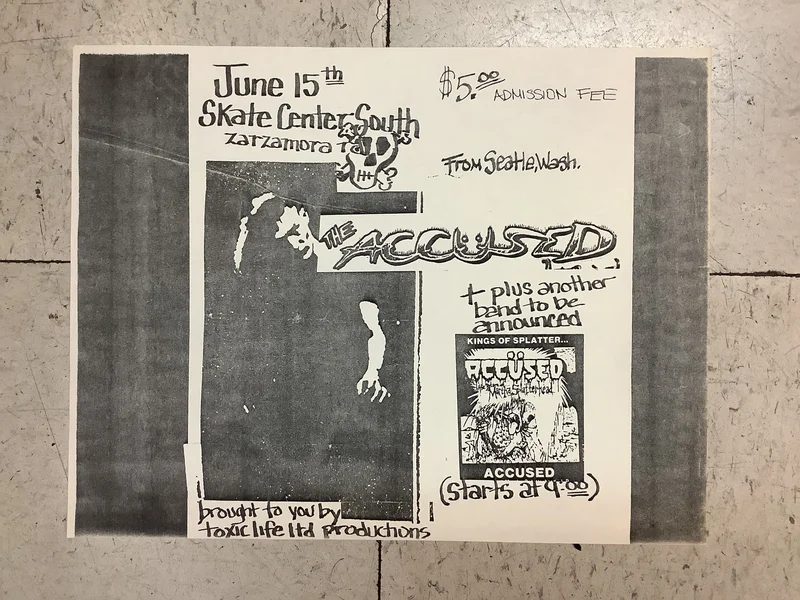 June 15th
Skate Center South
zarzamora
$5.00 ADMISSION FEE
From Seatle, Wash.
THE ACCÜSED
+ plus another
band to be
announced
KINGS OF SPLATTER...
ACCÜSED
Martha Splatterhead
ACCUSED
(Starts at 9:00)
brought to you by
toxic life ltd productions